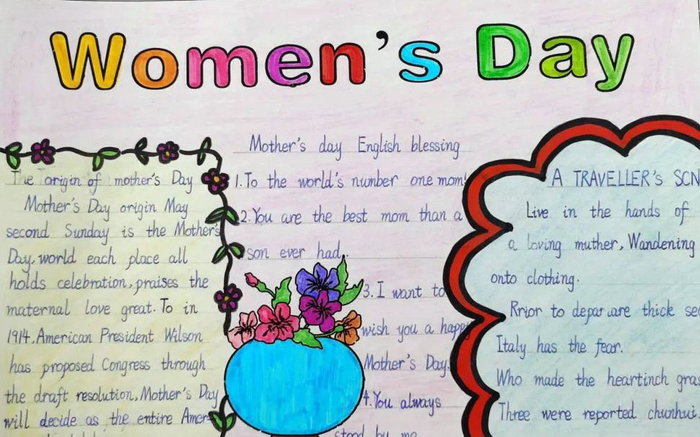 Women's Day
The origin of mother's Day
Mother's Day origin May
second Sunday is the Mother's
Day, world each place all
holds celebration, praises the
maternal love great. To in
1914. American President Wilson
has proposed Congress through
the draft resolution, Mother's Day
will decide as the entire Amer
Mother's day English blessing
1. To the world's number one mom!
2. You are the best mom than a
son ever had.
3. I want to
wish you a happ
Mother's Day.
4. You always
stood by me
A TRAVELLER'S SON
Live in the hands of
a loving muther, Wandening
onto clothing.
Rrior to depar.are thick se
Italy has the fear.
Who made the heartinch gras
Three were reported chunhui.